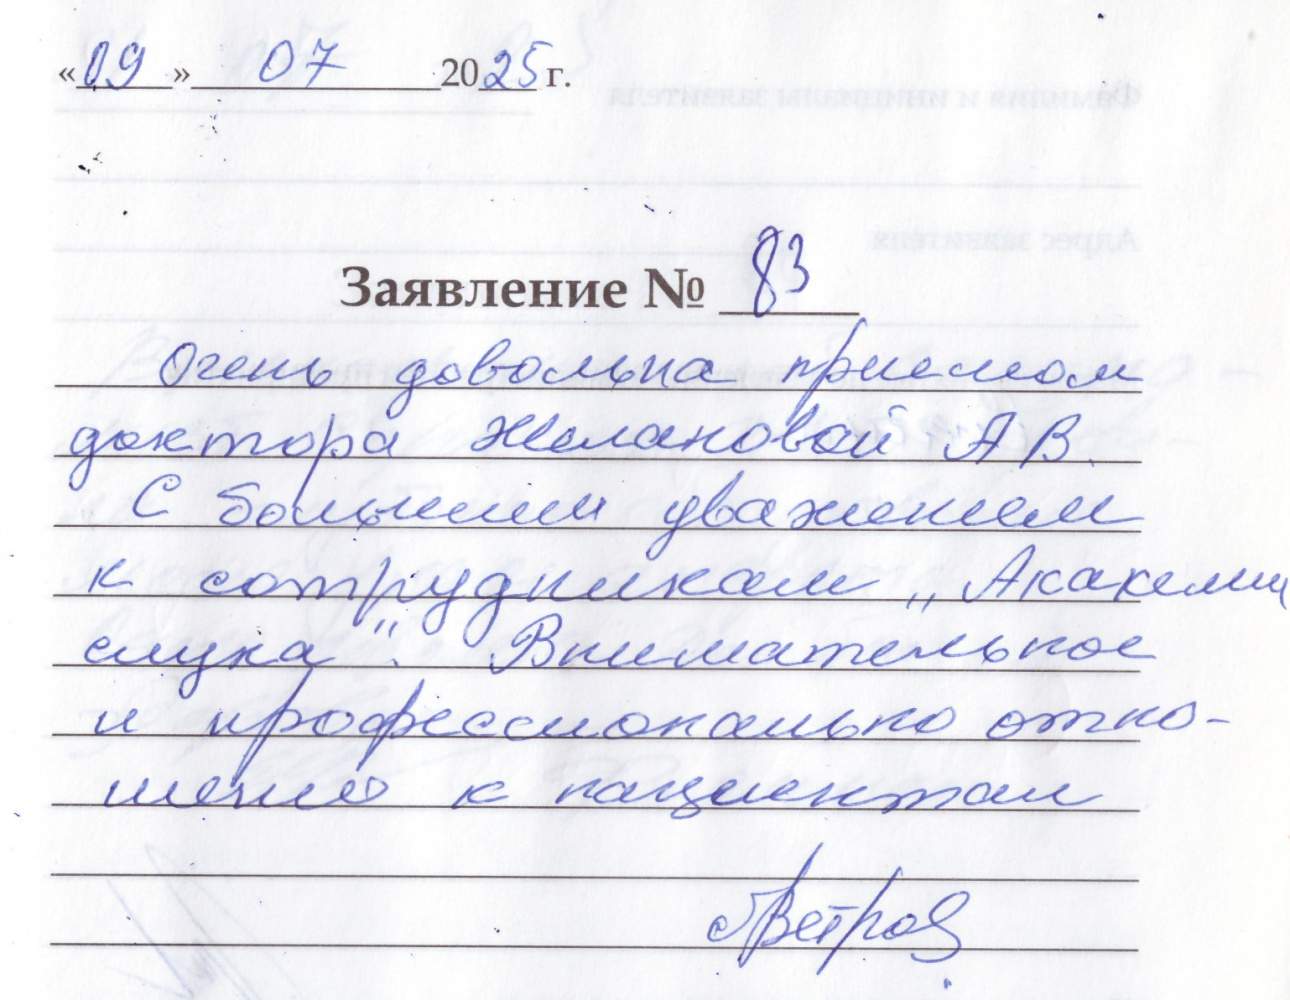 «09» 07 2025 г.
Заявление № 83
Очень довольна приемом
доктора Желановой А.В.
С большим уважением
к сотрудникам „Акакемии
слуха". Внимательное
и профессионально отно-
шение к пациентам
Ветров